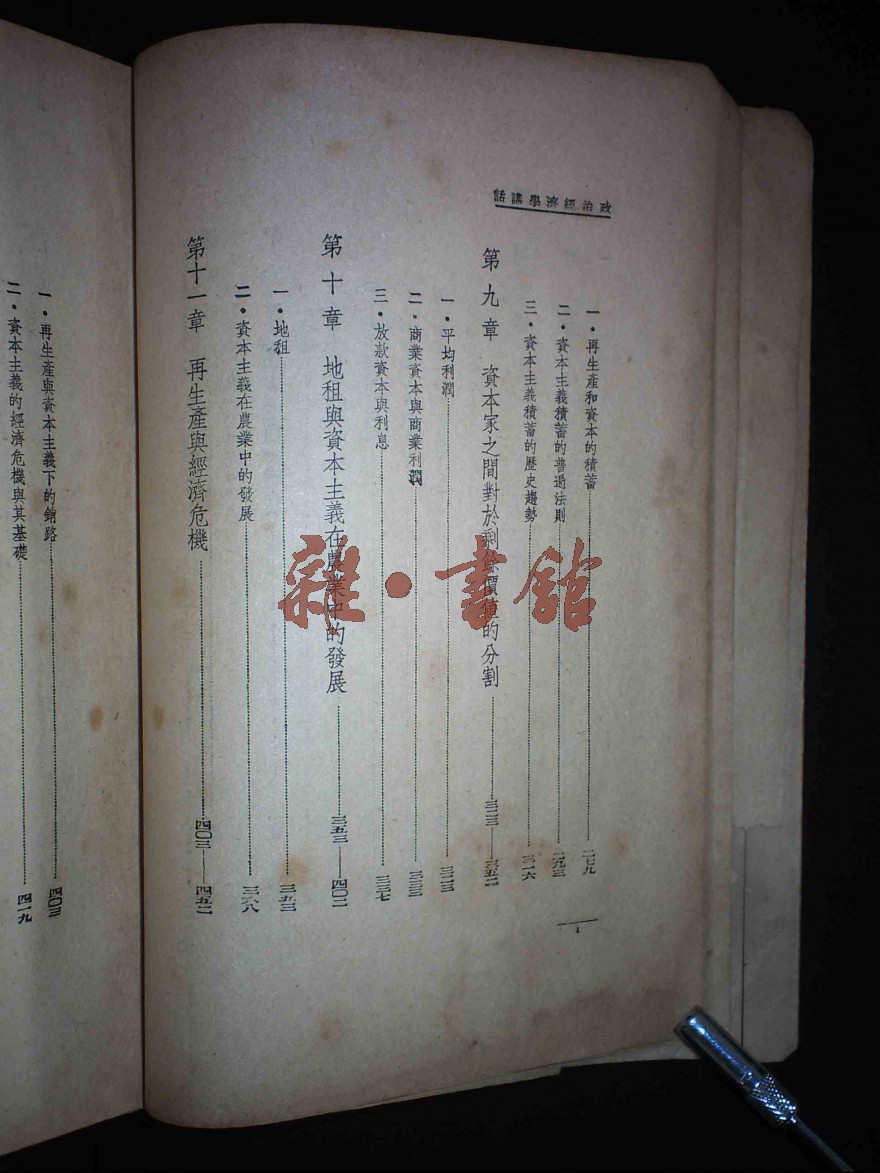 政治經濟學講話
一・再生產和資本的積蓄……二七九
二・資本主義積蓄的普遍法則……二九三
三・資本主義積蓄的歷史趨勢……三一六
第九章 資本家之間對於剩餘價值的分割……三二三——三五二
一・平均利潤……三二三
二・商業資本與商業利潤……三三三
三・放款資本與利息……三三七
第十章 地租與資本主義在農業中的發展……三五三——四〇二
一・地租……三五三
二・資本主義在農業中的發展……三六八
第十一章 再生產與經濟危機……四〇三——四五二
一・再生產與資本主義下的銷路……四〇三
二・資本主義的經濟危機與其基礎……四一九
4
雜・書館